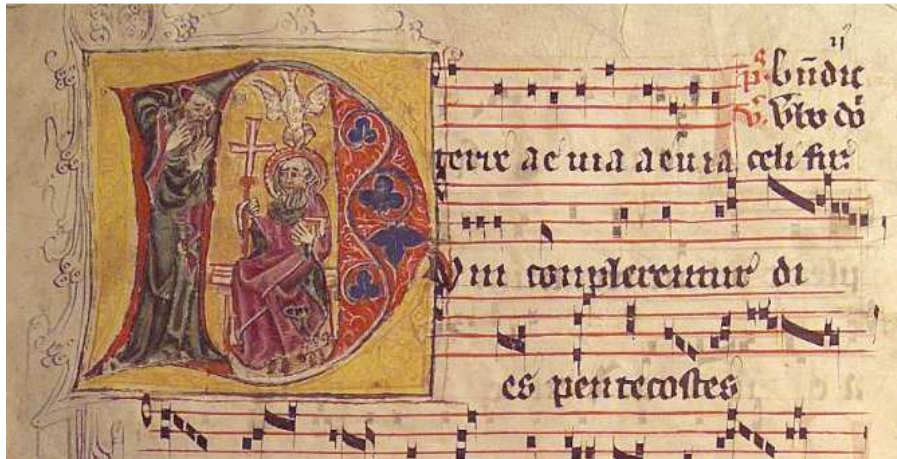 ij
ps. bn̄dic
v. Vbo dō
terre ae uia a eu ia celi fir
DVm conplerentur di
es pentecostes